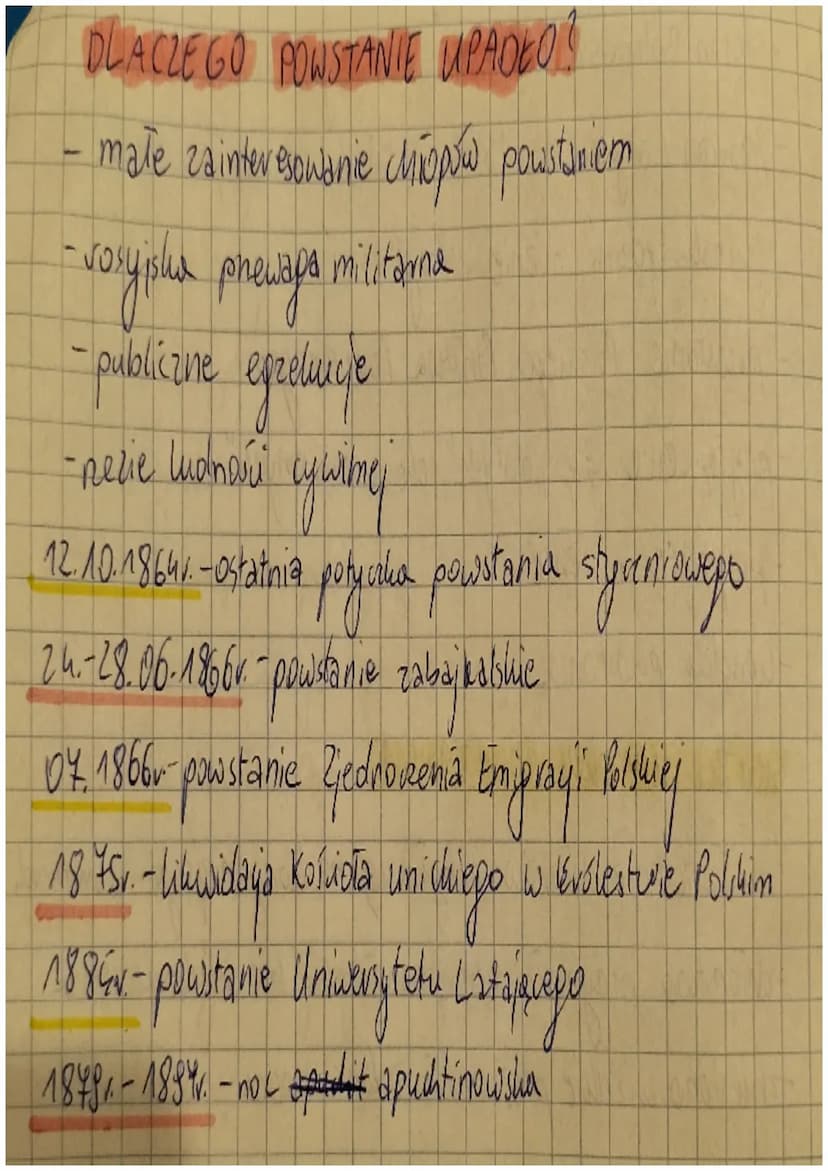 DLACZEGO POWSTANIE UPADŁO?
- małe zainteresowanie chłopów powstaniem
- rosyjska przewaga militarna
- publiczne egzekucje
- rezie ludności cywilnej
12.10.1864r. - ostatnia potyczka powstania styczniowego
24.-28.06.1866r. - powstanie zabajkalskie
07.1866r - powstanie Zjednoczenia Emigracji Polskiej
1875r. - likwidacja Kościoła unickiego w Królestwie Polskim
powstanie Uniwersytetu Latającego
1879r. - 1897r. - noc apuchtinowska